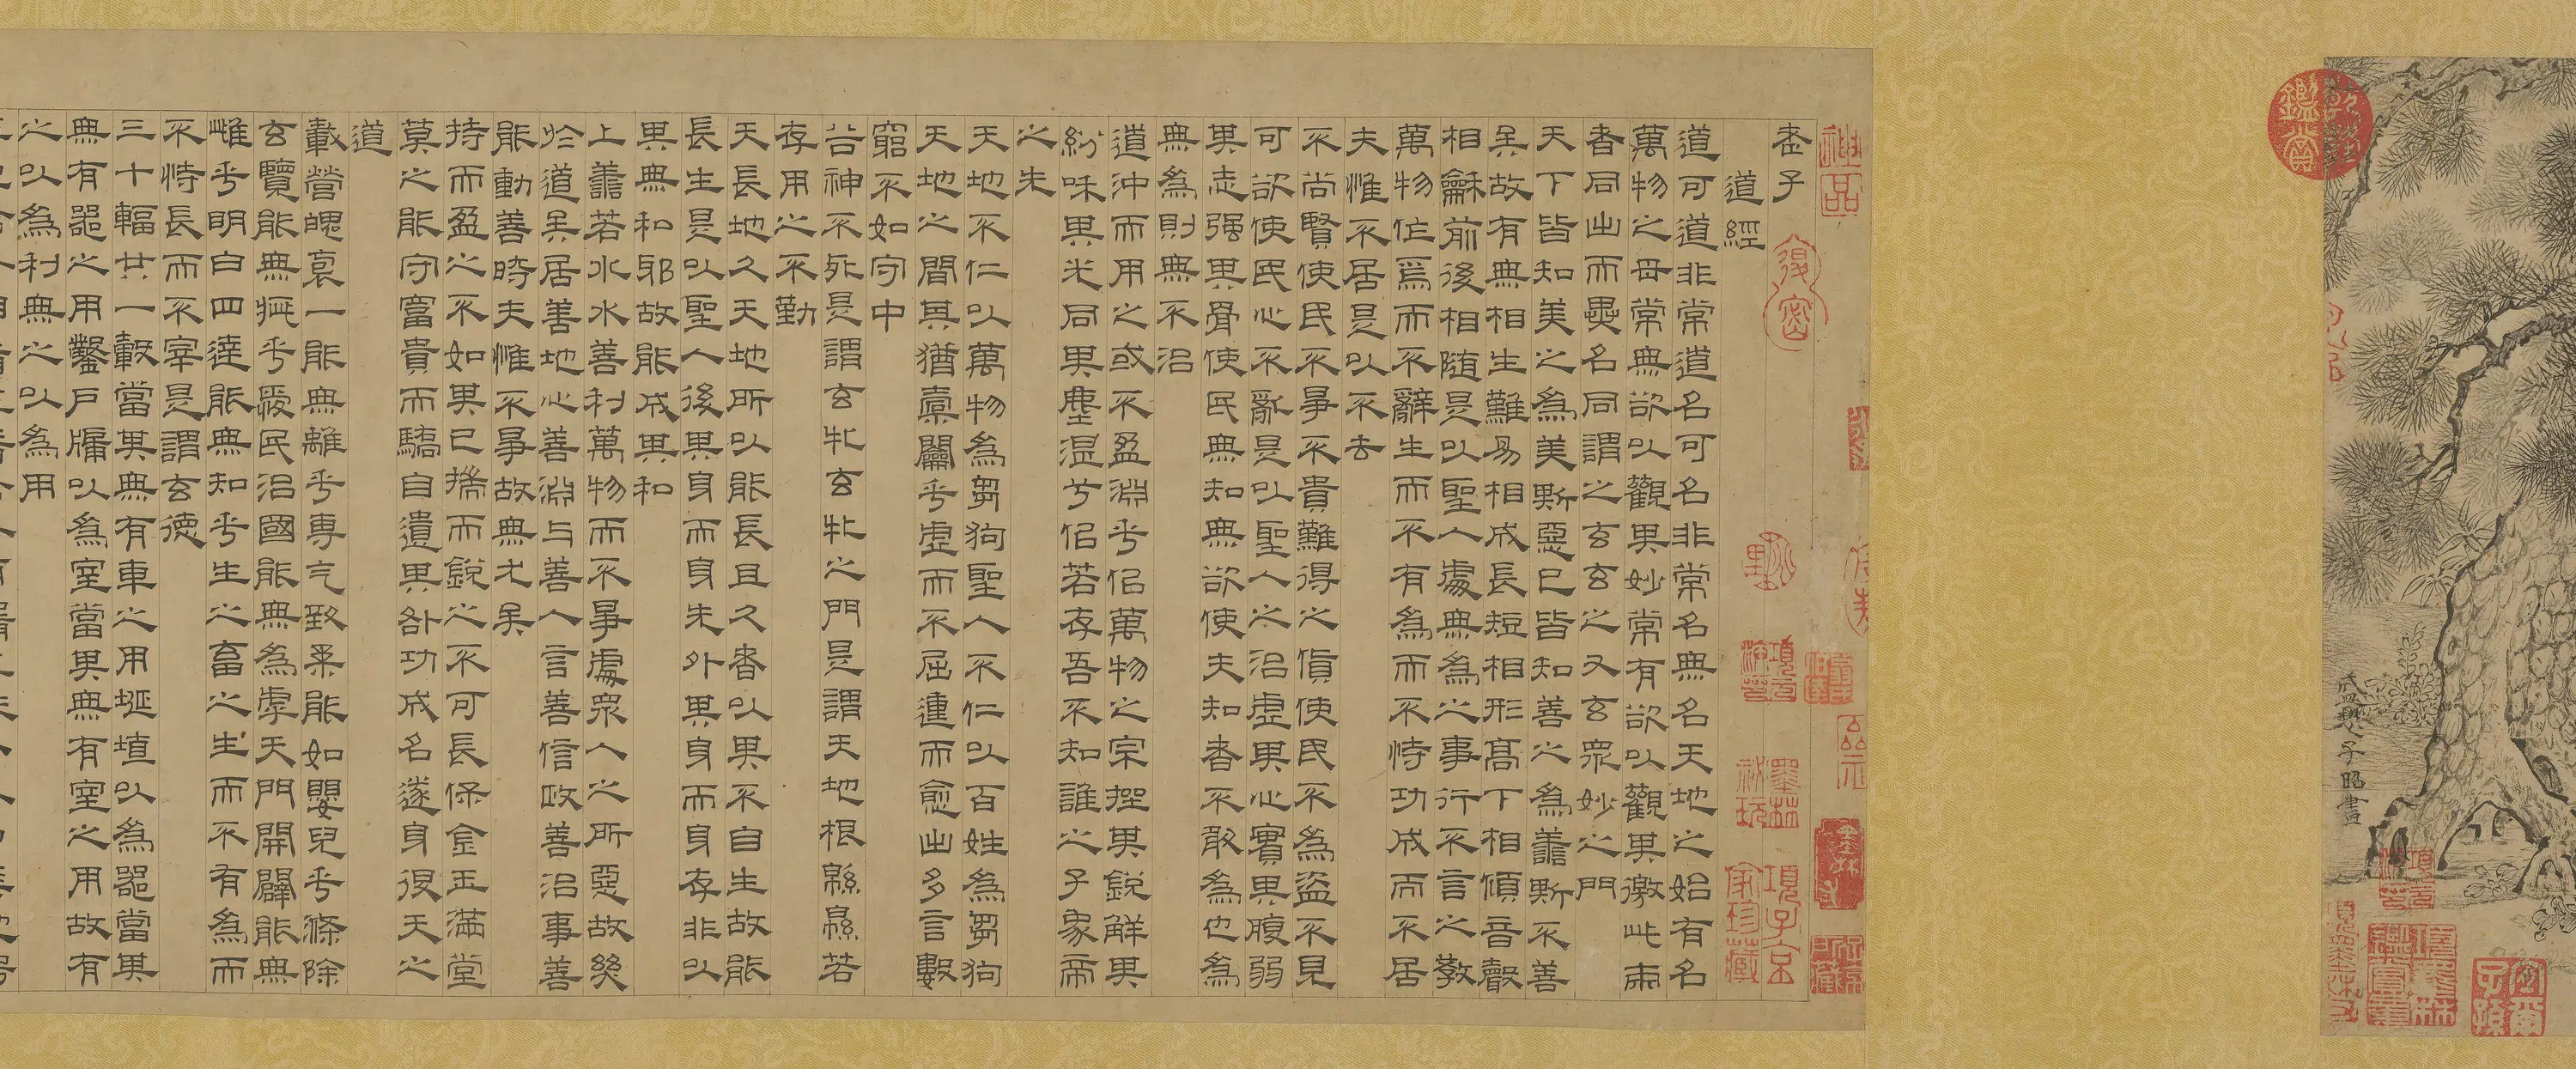 盛懋子昭畫
老子
道經
道可道非常道名可名非常名無名天地之始有名
萬物之母常無欲以觀其妙常有欲以觀其徼此兩
者同出而異名同謂之玄玄之又玄眾妙之門
天下皆知美之為美斯惡已皆知善之為善斯不善
矣故有無相生難易相成長短相形高下相傾音聲
相龢前後相隨是以聖人處無為之事行不言之教
萬物作焉而不辭生而不有為而不恃功成而不居
夫惟不居是以不去
不尚賢使民不爭不貴難得之貨使民不為盜不見
可欲使民心不亂是以聖人之治虛其心實其腹弱
其志强其骨使民無知無欲使夫知者不敢為也為
無為則無不治
道沖而用之或不盈淵乎似萬物之宗挫其銳解其
紛和其光同其塵湛兮似若存吾不知誰之子象帝
之先
天地不仁以萬物為芻狗聖人不仁以百姓為芻狗
天地之間其猶橐籥乎虛而不屈運而愈出多言數
窮不如守中
谷神不死是謂玄牝玄牝之門是謂天地根緜緜若
存用之不勤
天長地久天地所以能長且久者以其不自生故能
長生是以聖人後其身而身先外其身而身存非以
其無私邪故能成其私
上善若水水善利萬物而不爭處眾人之所惡故幾
於道矣居善地心善淵与善人言善信政善治事善
能動善時夫惟不爭故無尤矣
持而盈之不如其已揣而銳之不可長保金玉滿堂
莫之能守富貴而驕自遺其咎功成名遂身退天之
道
載營魄袌一能無離乎專气致柔能如嬰兒乎滌除
玄覽能無疵乎愛民治國能無為虖天門開闔能無
雌乎明白四達能無知乎生之畜之生而不有為而
不恃長而不宰是謂玄德
三十輻共一轂當其無有車之用埏埴以為器當其
無有器之用鑿戶牖以為室當其無有室之用故有
之以為利無之以為用